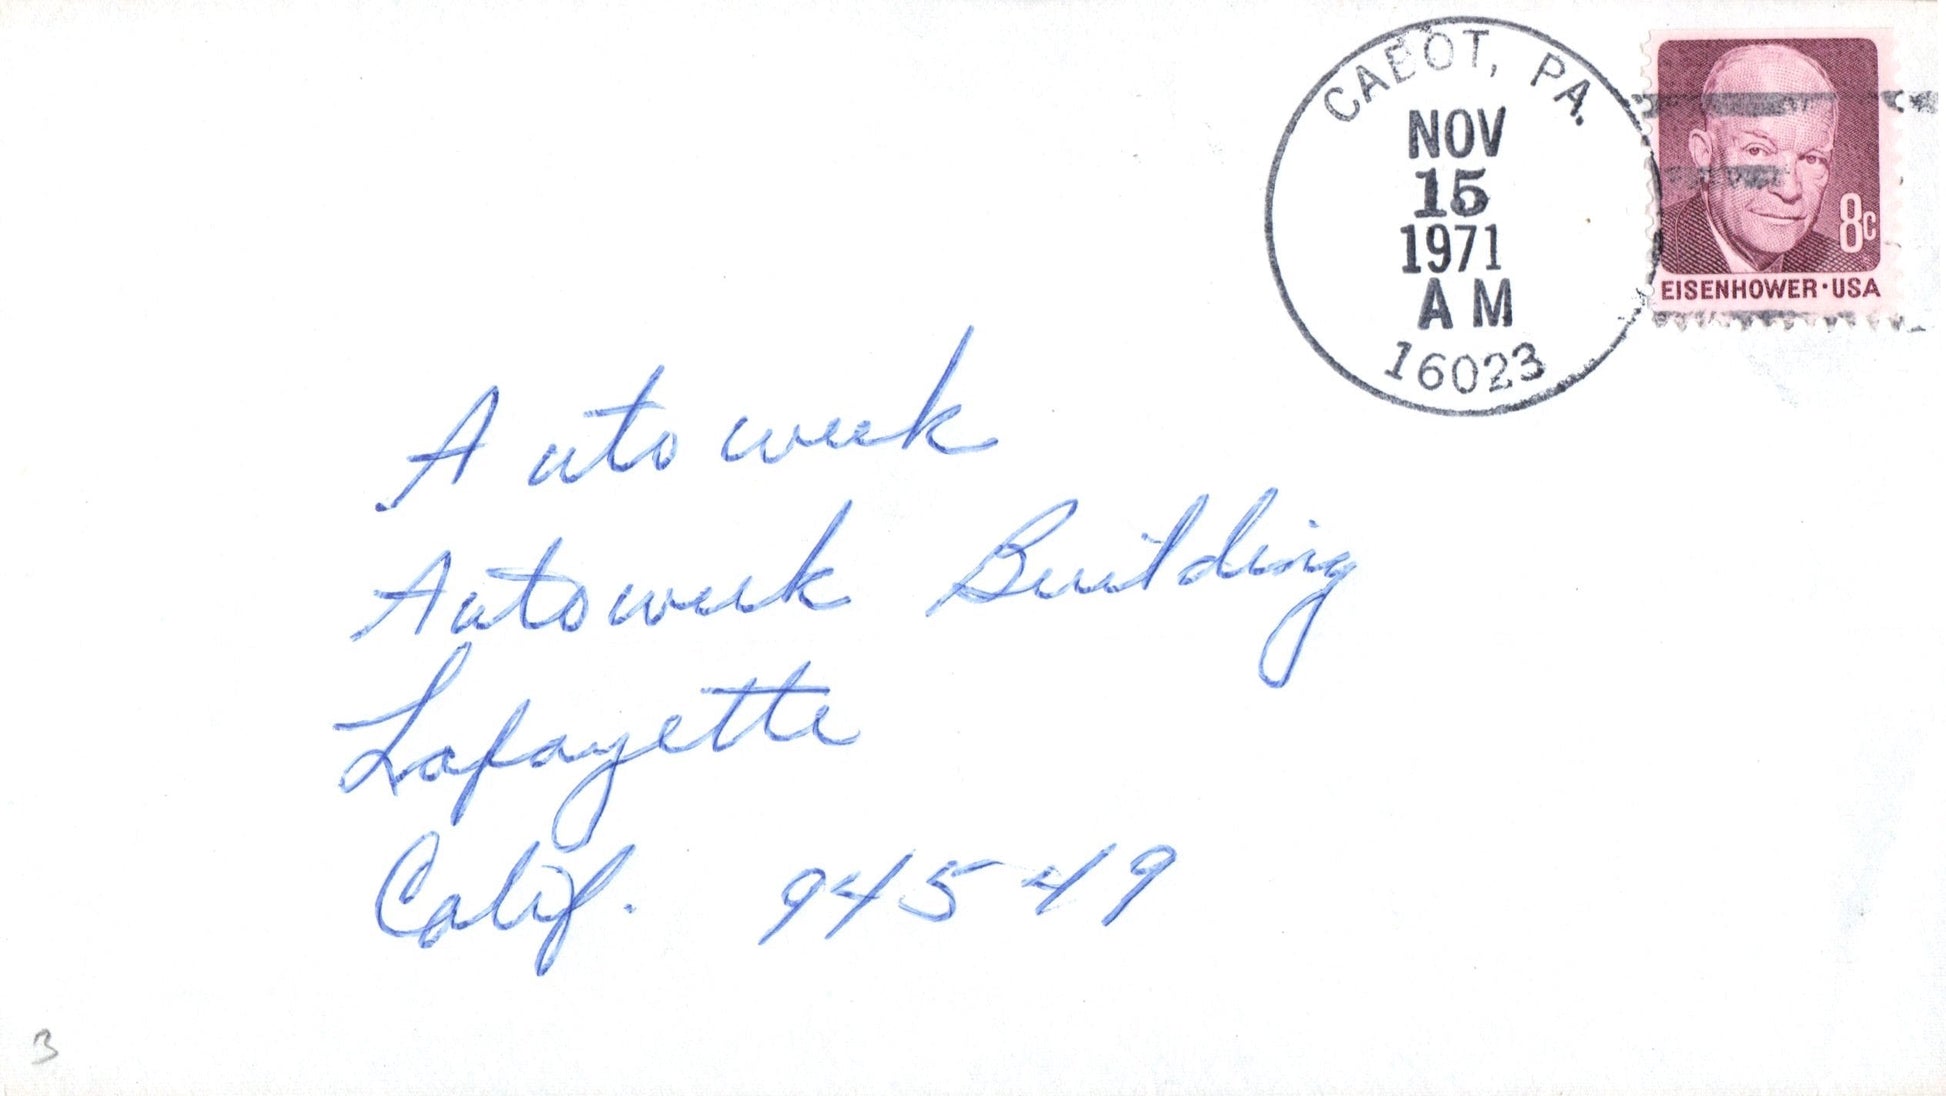 CABOT, PA.
NOV
15
1971
AM
16023
8c
EISENHOWER·USA
Autoweek
Autoweek Building
Lafayette
Calif. 94549
3